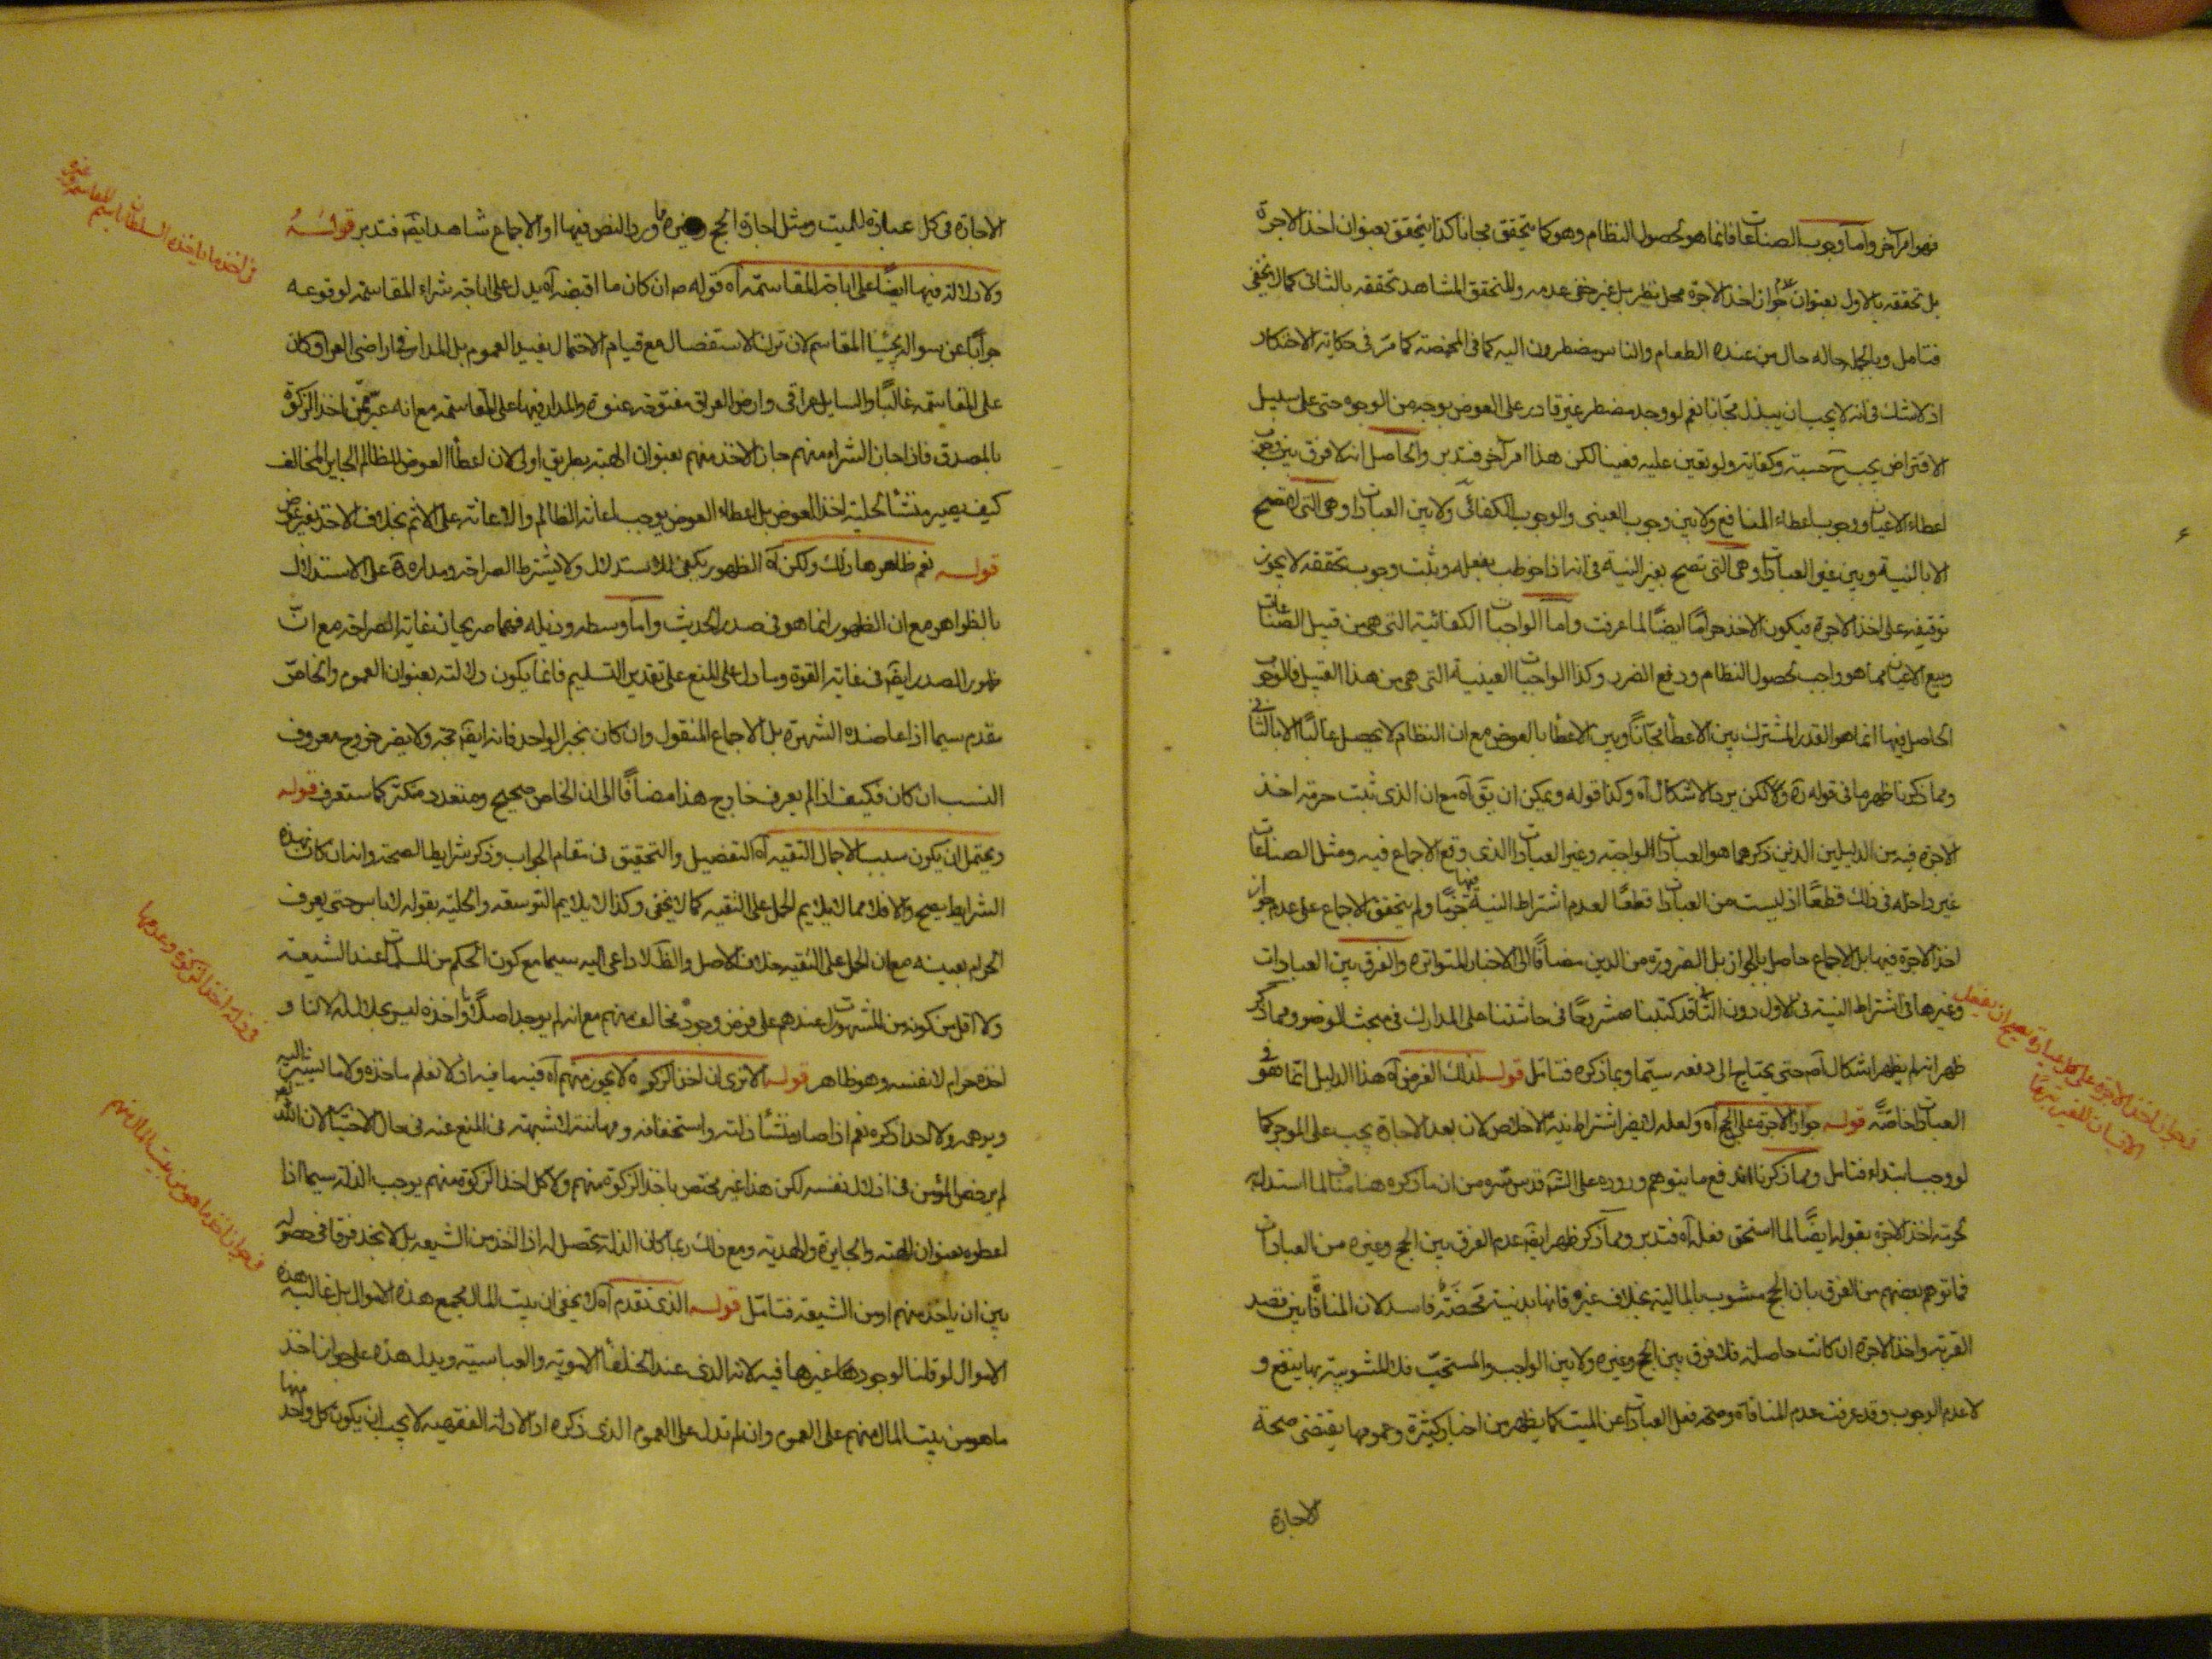 فهو امر آخر واما وجوب الصناعات فانما هو لحصول النظام وهو كما يتحقق مجانا كذا يتحقق بعنوان اخذ الاجرة
بل تحققه بالاول بعنوان عدم جواز اخذ الاجرة محل نظر بل غير خفى عدمه والمتحقق المشاهد تحققه بالثانى كما لا يخفى
فتامل وبالجملة حاله حال من عنده الطعام والناس مضطرون اليه كما فى المخمصة كما مر فى حكاية الاحتكار
اذ لا شك فى انه لا يجب ان يبذل مجانا نعم لو وجد مضطر غير قادر على العوض بوجه من الوجوه حتى على سبيل
الاقتراض يجب ح حسبة وكفاية ولو تعين عليه فعينا لكن هذا امر آخر فتدبر والحاصل انه لا فرق بين وجوب
اعطاء الاعيان ووجوب اعطاء المنافع ولا بين وجوب العينى والوجوب الكفائى ولا بين العبادات وهى التى لا تصح
الا بالنية وبين غير العبادات وهى التى تصح بغير النية فى انه اذا خوطب بفعله وثبت وجوب تحققه لا يجوز
توقيفه على اخذ الاجرة فيكون الاخذ حراما ايضا لما عرفت واما الواجبات الكفائية التى هى من قبيل الصناعات
وبيع الاعيان مما هو واجب لحصول النظام ودفع الضرر وكذا الواجبات العينية التى هى من هذا القبيل فالوجوب
الحاصل فيها انما هو القدر المشترك بين الاعطاء مجانا وبين الاعطاء بالعوض مع ان النظام لا يحصل غالبا الا بالثانى
ومما ذكرنا ظهر ما فى قوله ره ولكن يرد الاشكال آه وكذا قوله ويمكن ان يق آه مع ان الذى ثبت حرمة اخذ
الاجرة فيه من الدليلين الذين ذكرهما هو العبادات الواجبة وغير العبادات الذى وقع الاجماع فيه ومثل الصناعات
غير داخلة فى ذلك قطعا اذ ليست من العبادات قطعا لعدم اشتراط النية فيها جزما ولم يتحقق الاجماع على عدم جواز
اخذ الاجرة فيها بل الاجماع حاصل بالجواز بل الضرورة من الدين مضافا الى الاخبار المتواترة والفرق بين العبادات
وغيرها فى اشتراط النية فى الاول دون الثانى قد كتبنا مشروحا فى حاشيتنا على المدارك فى مبحث الوضوء ومما ذكر
ظهر انه لم يظهر اشكال آه حتى يحتاج الى دفعه سيما وبما ذكره فتامل قوله لذلك الغرض آه هذا الدليل انما هو فى
العبادات خاصة قوله جواز الاجرة على الحج آه ولعله لا يضر اشتراط نية الاخلاص لان بعد الاجارة يجب على الموجر كما
لو وجب ابتداء فتامل ومما ذكرنا اندفع ما يتوهم وروده على الش قدس سره من ان ما ذكره هنا مناف لما استدل به
لحرمة اخذ الاجرة بقوله ايضا لما استحق فعله آه فتدبر ومما ذكر ظهر ايضا عدم الفرق بين الحج وغيره من العبادات
فما توهم بعضهم من الفرق بان الحج مشوب بالمالية بخلاف غيره فانها بدنية محضة فاسد لان المنافاة بين قصد
القربة واخذ الاجرة ان كانت حاصلة فلا فرق بين الحج وغيره ولا بين الواجب والمستحب فلا المشوبية بها ينفع و
لا عدم الوجوب وقد عرفت عدم المنافاة وصحة فعل العبادات عن الميت كما يظهر من اخبار كثيرة وعمومها يقتضى صحة
الاجارة
فى جواز اخذ الاجرة على كل عبادة يصح ان يفعله
الانسان للغير تبرعا
الاجارة فى كل عبادة للميت ومثل اجارة الحج وغيره ما ورد النص فيها او الاجماع شاهد ايضا فتدبر قوله
ولا دلالة فيها ايضا على اباحة المقاسمة آه قوله ع ان كان ما اقبضه آه يدل على اباحة شراء المقاسمة لوقوعه
جوابا عن سؤاله يجيئنا القاسم لان ترك الاستفصال مع قيام الاحتمال يفيد العموم بل المدار فى اراضى العراق كان
على المقاسمة غالبا والسايل عراقى وارض العراق مفتوحة عنوة والمدار فيها على المقاسمة مع انه عبر عمن ياخذ الزكوة
بالمصدق فاذا جاز الشراء منهم جاز الاخذ منهم بعنوان الهبة بطريق اولى لان اعطاء العوض للظالم الجاير المخالف
كيف يصير منشأ لحلية اخذ العوض بل اعطاء العوض يوجب اعانة الظالم والاعانة على الاثم بخلاف الاخذ بغير عوض
قوله نعم ظاهرها ذلك ولكن آه الظهور يكفى للاستدلال ولا يشترط الصراحة ومداره ره على الاستدلال
بالظواهر مع ان الظهور انما هو فى صدر الحديث واما وسطه وذيله فهما صريحان غاية الصراحة مع ان
ظهور الصدر ايضا فى غاية القوة وما دل على المنع على تقدير التسليم فانما يكون دلالته بعنوان العموم والخاص
مقدم سيما اذا عاضده الشهرة بل الاجماع المنقول وان كان بخبر الواحد فانه ايضا حجة ولا يضر خروج معروف
النسب ان كان فكيف اذا لم يعرف خارج هذا مضافا الى ان الخاص صحيح ومتعدد متكثر كما ستعرف قوله
ويحتمل ان يكون سبب الاجمال التقية آه التفصيل والتحقيق فى مقام الجواب وذكر شرايط الصحة وانه ان كان بهذه
الشرايط يصح والا فلا مما لا يلايم الحمل على التقية كما لا يخفى وكذا لا يلايم التوسعة والحلية بقوله لا باس حتى يعرف
الحرام بعينه مع ان الحمل على التقية خلاف الاصل والظ لا داعى اليه سيما مع كون الحكم من المسلمات عند الشيعة
ولا اقل من كونه من المشهورات عندهم على فرض وجود مخالف منهم مع انه لم يوجد اصلا واخذه ليس بحلال له لا لنا و
اخذه حرام لا نفسه وهو ظاهر قوله الا ترى ان اخذ الزكوة لا يجوز منهم آه فيه ما فيه اذ لا نعلم ماخذه ولا ما يشير اليه
ويوهمه ولا احد ذكره نعم اذا صار منشأ ذلته واستخفافه ومهانته لا شبهة فى المنع عنه فى حال الاختيار لان الله تعه
لم يرخص المؤمن فى اذلال نفسه لكن هذا غير مختص باخذ الزكوة منهم ولا كل اخذ الزكوة منهم يوجب الذلة سيما اذا
اعطوه بعنوان الهبة والجايزة والهدية ومع ذلك ربما كان الذلة تحصل له اذا اخذ من الشيعة بل لا نجد فرقا فى حصوله
بين ان ياخذ منهم او من الشيعة فتامل قوله الذى تقدم آه لا يخفى ان بيت المال مجمع هذه الاموال بل غالبه هذه
الاموال لو قلنا لوجود غيرها فيه لانه الذى عند الخلفاء الاموية والعباسية ويدل هذه على جواز اخذ
ما هو من بيت المال منهم على العموم وان لم تدل على العموم الذى ذكره اذ الادلة الفقهية لا يجب ان يكون كل واحد منها
فى اخذ ما ياخذه السلطان باسم المقاسمة وغيره
فى جواز اخذ الزكوة وعدمها
فى جواز اخذ ما هو من بيت المال منهم